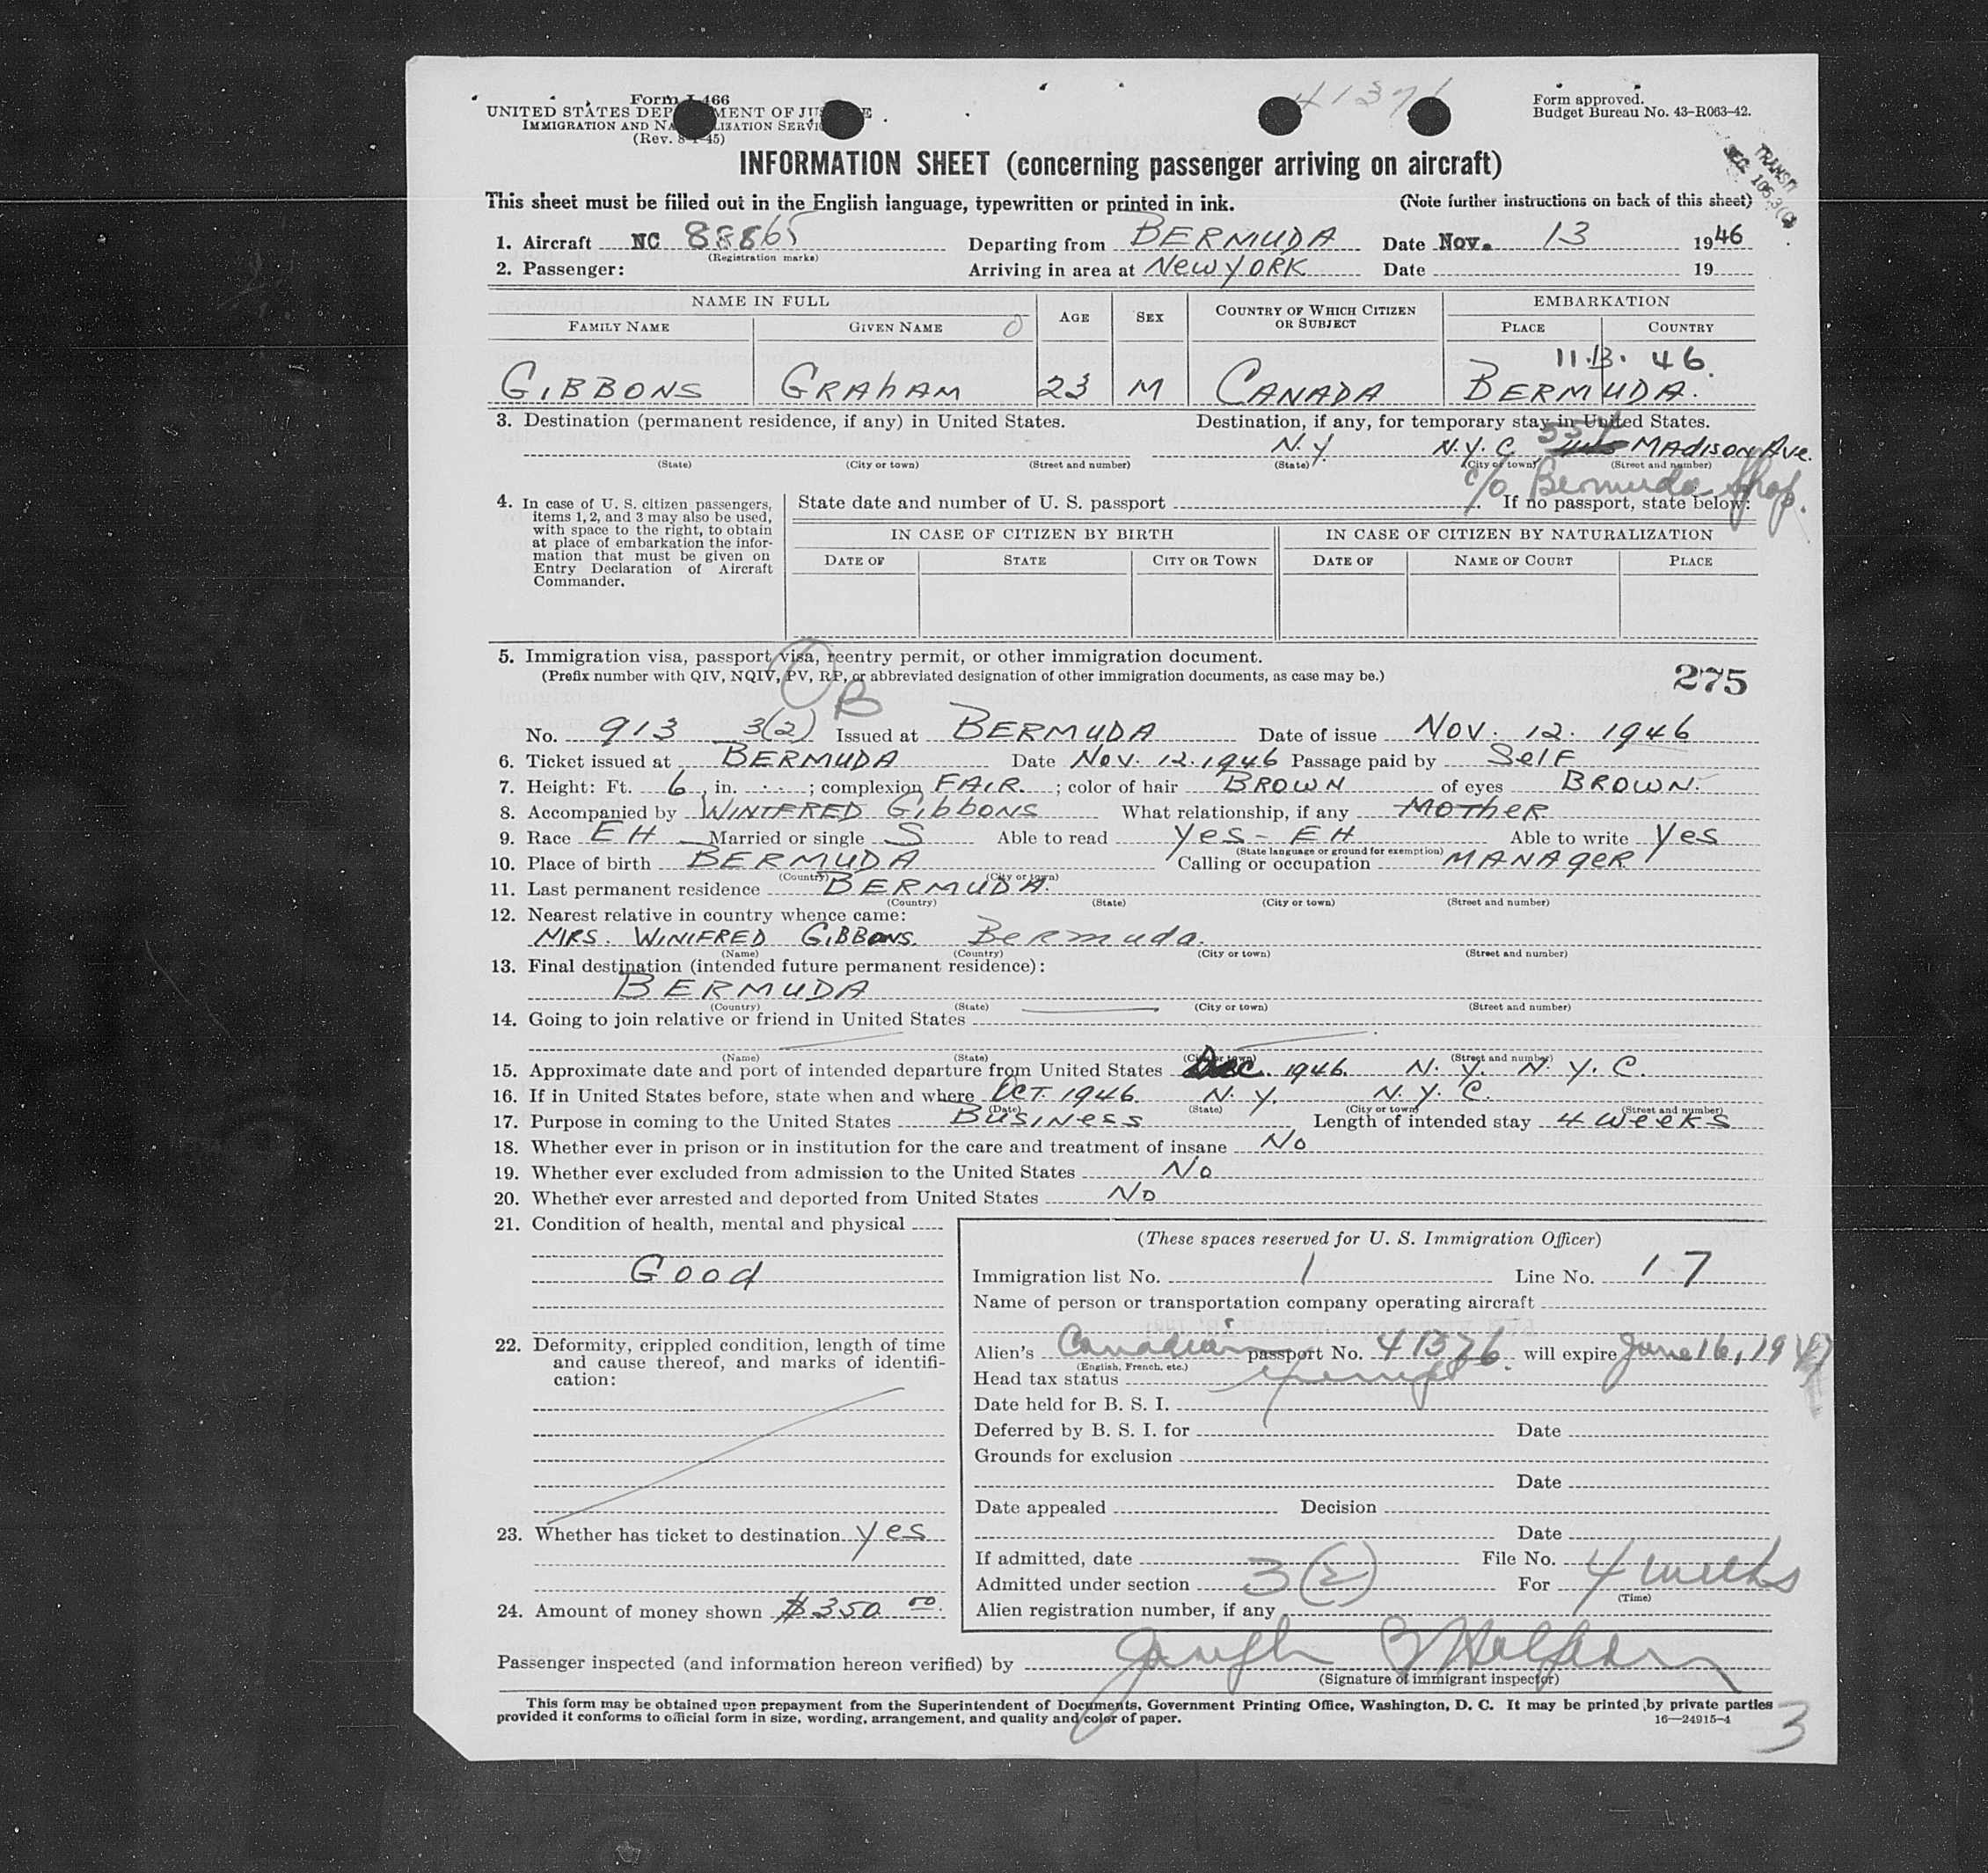 41376
Form I-466
UNITED STATES DEPARTMENT OF JUSTICE
IMMIGRATION AND NATURALIZATION SERVICE
(Rev. 8-1-45)
Form approved.
Budget Bureau No. 43-R063-42.
TRANSIT
SEC 105.3(C)
INFORMATION SHEET (concerning passenger arriving on aircraft)
This sheet must be filled out in the English language, typewritten or printed in ink. (Note further instructions on back of this sheet)
1. Aircraft NC 88865 Departing from BERMUDA Date Nov. 13 1946
(Registration marks)
2. Passenger: Arriving in area at New YORK Date 19
NAME IN FULL AGE SEX COUNTRY OF WHICH CITIZEN OR SUBJECT EMBARKATION
FAMILY NAME GIVEN NAME PLACE COUNTRY
11.13.46.
GIBBONS GRAhAM 23 M CANADA BERMUDA.
3. Destination (permanent residence, if any) in United States. Destination, if any, for temporary stay in United States.
N.Y. N.Y.C. 554 MADISON Ave.
(State) (City or town) (Street and number) (State) (City or town) (Street and number)
c/o Bermuda Shop.
4. In case of U. S. citizen passengers, items 1, 2, and 3 may also be used, with space to the right, to obtain at place of embarkation the information that must be given on Entry Declaration of Aircraft Commander.
State date and number of U. S. passport If no passport, state below:
IN CASE OF CITIZEN BY BIRTH IN CASE OF CITIZEN BY NATURALIZATION
DATE OF STATE CITY OR TOWN DATE OF NAME OF COURT PLACE
5. Immigration visa, passport visa, reentry permit, or other immigration document.
(Prefix number with QIV, NQIV, PV, RP, or abbreviated designation of other immigration documents, as case may be.)
275
B
No. 913 3(2) Issued at BERMUDA Date of issue Nov. 12. 1946
6. Ticket issued at BERMUDA Date Nov. 12. 1946 Passage paid by Self
7. Height: Ft. 6, in. - -; complexion FAIR.; color of hair BROWN of eyes BROWN.
8. Accompanied by WINIFRED Gibbons What relationship, if any MOTHER
9. Race EH Married or single S Able to read yes - EH Able to write yes
(State language or ground for exemption)
10. Place of birth BERMUDA Calling or occupation MANAGER
(Country) (City or town)
11. Last permanent residence BERMUDA.
(Country) (State) (City or town) (Street and number)
12. Nearest relative in country whence came:
MRS. WINIFRED GIBBONS. Bermuda.
(Name) (Country) (City or town) (Street and number)
13. Final destination (intended future permanent residence):
BERMUDA
(Country) (State) (City or town) (Street and number)
14. Going to join relative or friend in United States
(Name) (State) (City or town) (Street and number)
15. Approximate date and port of intended departure from United States Dec. 1946. N. Y. N. Y. C.
16. If in United States before, state when and where OCT. 1946. N. Y. N. Y. C.
(Date) (State) (City or town) (Street and number)
17. Purpose in coming to the United States BUSINESS Length of intended stay 4 weeks
18. Whether ever in prison or in institution for the care and treatment of insane No
19. Whether ever excluded from admission to the United States No
20. Whether ever arrested and deported from United States No
21. Condition of health, mental and physical
Good
22. Deformity, crippled condition, length of time and cause thereof, and marks of identification:
23. Whether has ticket to destination yes
24. Amount of money shown $350.00
(These spaces reserved for U. S. Immigration Officer)
Immigration list No. 1 Line No. 17
Name of person or transportation company operating aircraft
Alien's Canadian passport No. 41376 will expire June 16, 1947
(English, French, etc.)
Head tax status exempt
Date held for B. S. I.
Deferred by B. S. I. for Date
Grounds for exclusion
Date
Date appealed Decision
Date
If admitted, date File No.
Admitted under section 3(2) For 4 weeks
(Time)
Alien registration number, if any
Passenger inspected (and information hereon verified) by
(Signature of immigrant inspector)
This form may be obtained upon prepayment from the Superintendent of Documents, Government Printing Office, Washington, D. C. It may be printed by private parties
provided it conforms to official form in size, wording, arrangement, and quality and color of paper. 16—24915-4
3